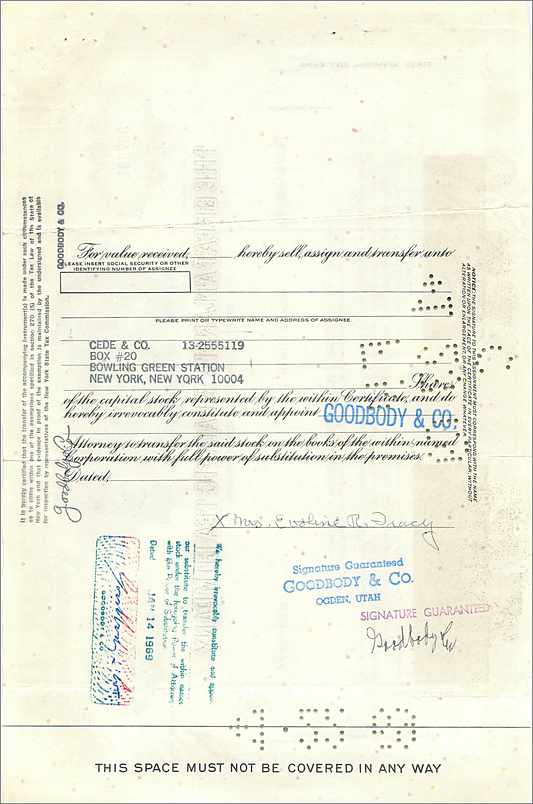 For value received, hereby sell, assign and transfer unto
PLEASE INSERT SOCIAL SECURITY OR OTHER
IDENTIFYING NUMBER OF ASSIGNEE
PLEASE PRINT OR TYPEWRITE NAME AND ADDRESS OF ASSIGNEE
CEDE & CO. 13-2555119
BOX #20
BOWLING GREEN STATION
NEW YORK, NEW YORK 10004
Shares
of the capital stock represented by the within Certificate, and do
hereby irrevocably constitute and appoint GOODBODY & CO.
Attorney to transfer the said stock on the books of the within named
Corporation with full power of substitution in the premises.
Dated,
X Mrs. Evoline R. Tracy
Signature Guaranteed
GOODBODY & CO.
OGDEN, UTAH
SIGNATURE GUARANTEED
Goodbody & Co
GOODBODY & CO.
It is hereby certified that the transfer of the accompanying instrument(s) is made under such circumstances
as to come within one of the exemptions specified in section 270 (5) of the Tax Law of the State of
New York and that evidence in proof of the exemption is maintained by the undersigned and is available
for inspection by representatives of the New York State Tax Commission.
NOTICE. THE SIGNATURE TO THIS ASSIGNMENT MUST CORRESPOND WITH THE NAME
AS WRITTEN UPON THE FACE OF THE CERTIFICATE IN EVERY PARTICULAR, WITHOUT
ALTERATION OR ENLARGEMENT OR ANY CHANGE WHATEVER.
We hereby irrevocably constitute and appoint
our substitute to transfer the within named
stock under the foregoing Power of Attorney
with like Power of Substitution
Dated JAN 14 1969
GOODBODY & CO
THIS SPACE MUST NOT BE COVERED IN ANY WAY